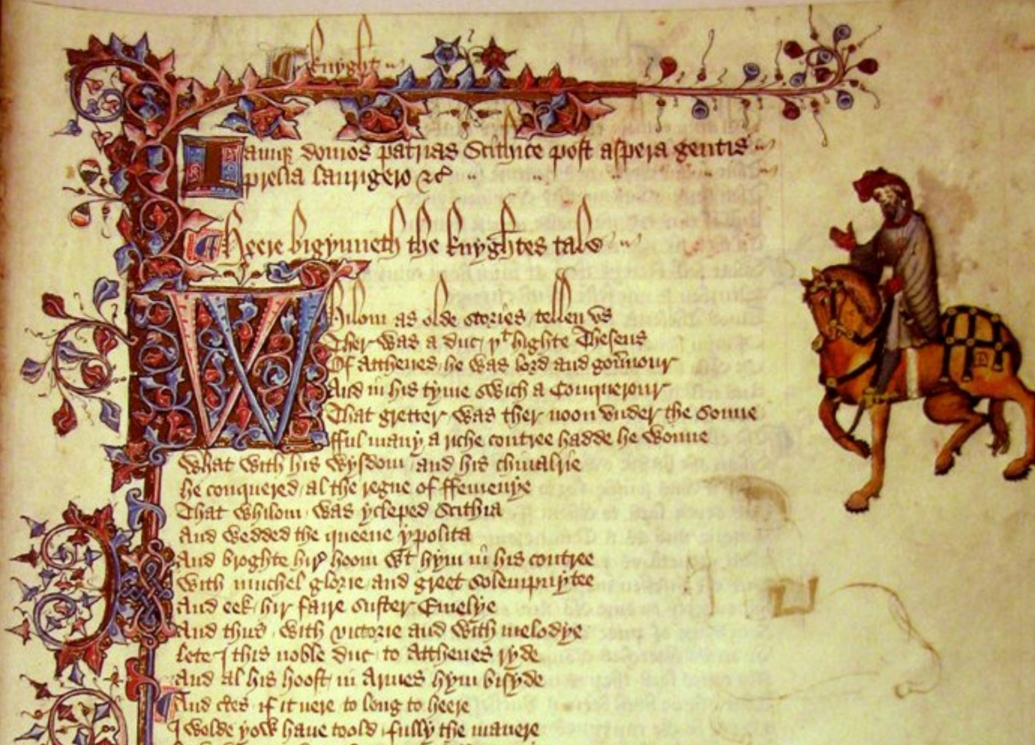 ¶ Knyght
Iamque domos patrias Scithice post aspera gentis
prelia laurigero &c
¶ Heere bigynneth the knyghtes tale
Whilom as olde stories tellen vs
Ther was a duc þt highte Theseus
Of Atthenes he was lord and gouernour
And in his tyme swich a Conquerour
That gretter was ther noon vnder the sonne
fful many a riche contree hadde he wonne
What with his wysdom and his chiualrie
he conquered al the regne of ffemenye
That whilom was ycleped Scithia
And wedded the queene ypolita
And broghte hir hoom wt hym in his contree
With muchel glorie and greet solempnytee
And eek hir faire suster Emelye
And thus with victorie and with melodye
lete I this noble duc to Atthenes ryde
And al his hoost in Armes hym bisyde
And certes if it nere to long to heere
I wolde yow haue toold fully the manere